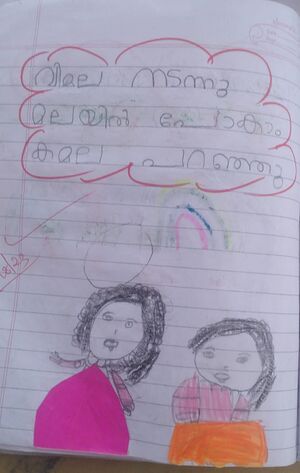 വിമല നടന്നു
മലയിൽ പോകാം
കമല പറഞ്ഞു